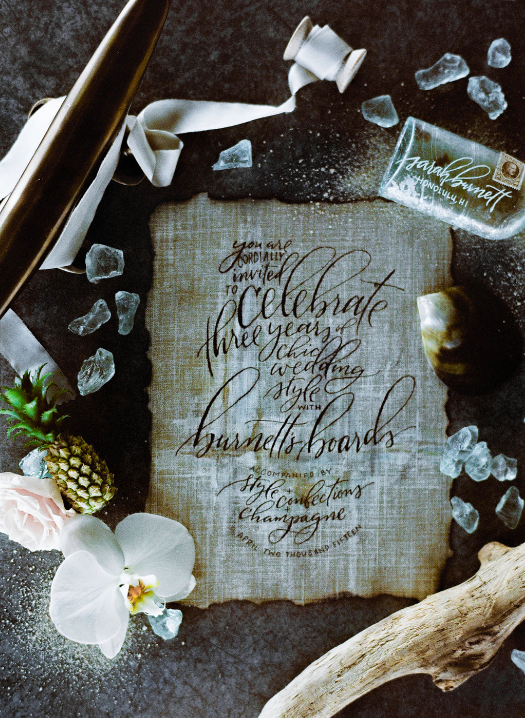 you are
CORDIALLY
invited
TO celebrate
three years of
chic
wedding
style
WITH
burnett's boards
ACCOMPANIED BY
style confections
champagne
APRIL TWO THOUSAND FIFTEEN
sarah burnett
HONOLULU, HI